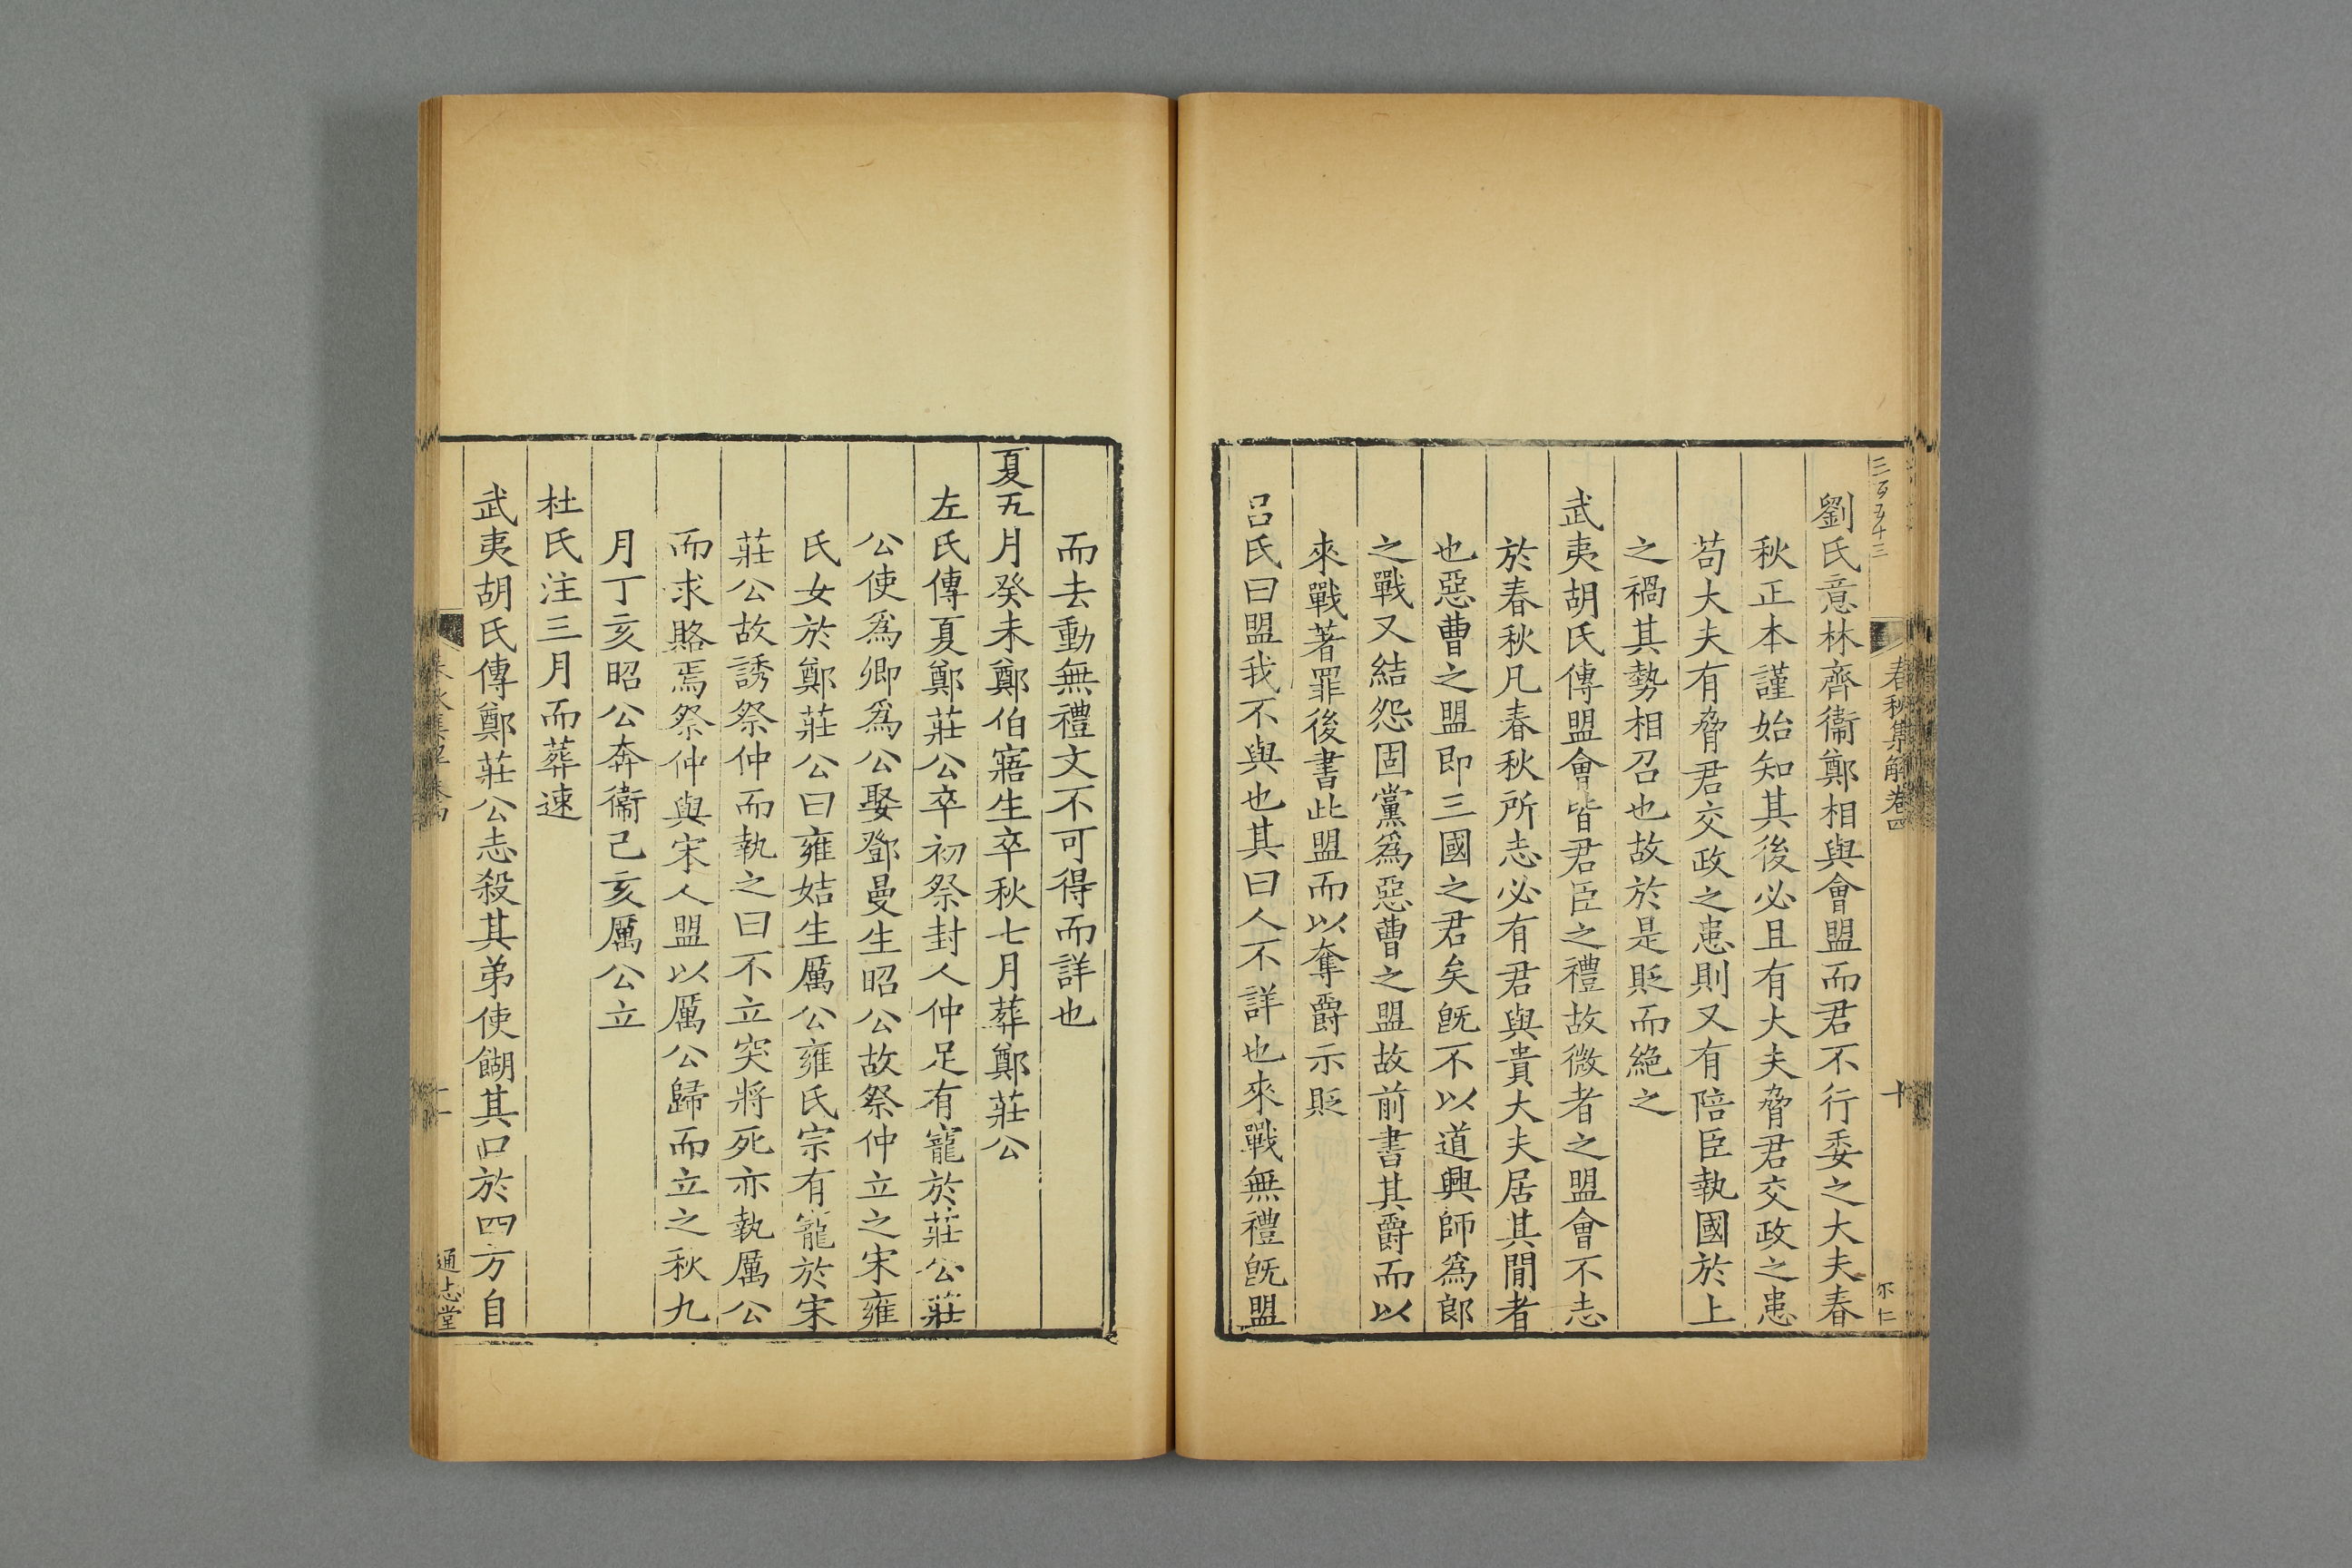 三百五十三
春秋集解卷四
十
尔仁
劉氏意林齊衞鄭相與會盟而君不行委之大夫春
秋正本謹始知其後必且有大夫脅君交政之患
苟大夫有脅君交政之患則又有陪臣執國於上
之禍其勢相召也故於是貶而絶之
武夷胡氏傳盟會皆君臣之禮故微者之盟會不志
於春秋凡春秋所志必有君與貴大夫居其閒者
也惡曹之盟即三國之君矣旣不以道興師爲郎
之戰又結怨固黨爲惡曹之盟故前書其爵而以
來戰著罪後書此盟而以奪爵示貶
呂氏曰盟我不與也其曰人不詳也來戰無禮旣盟
而去動無禮文不可得而詳也
夏五月癸未鄭伯寤生卒秋七月葬鄭莊公
左氏傳夏鄭莊公卒初祭封人仲足有寵於莊公莊
公使爲卿爲公娶鄧曼生昭公故祭仲立之宋雍
氏女於鄭莊公曰雍姞生厲公雍氏宗有寵於宋
莊公故誘祭仲而執之曰不立突將死亦執厲公
而求賂焉祭仲與宋人盟以厲公歸而立之秋九
月丁亥昭公奔衞己亥厲公立
杜氏注三月而葬速
武夷胡氏傳鄭莊公志殺其弟使餬其口於四方自
十一
通志堂